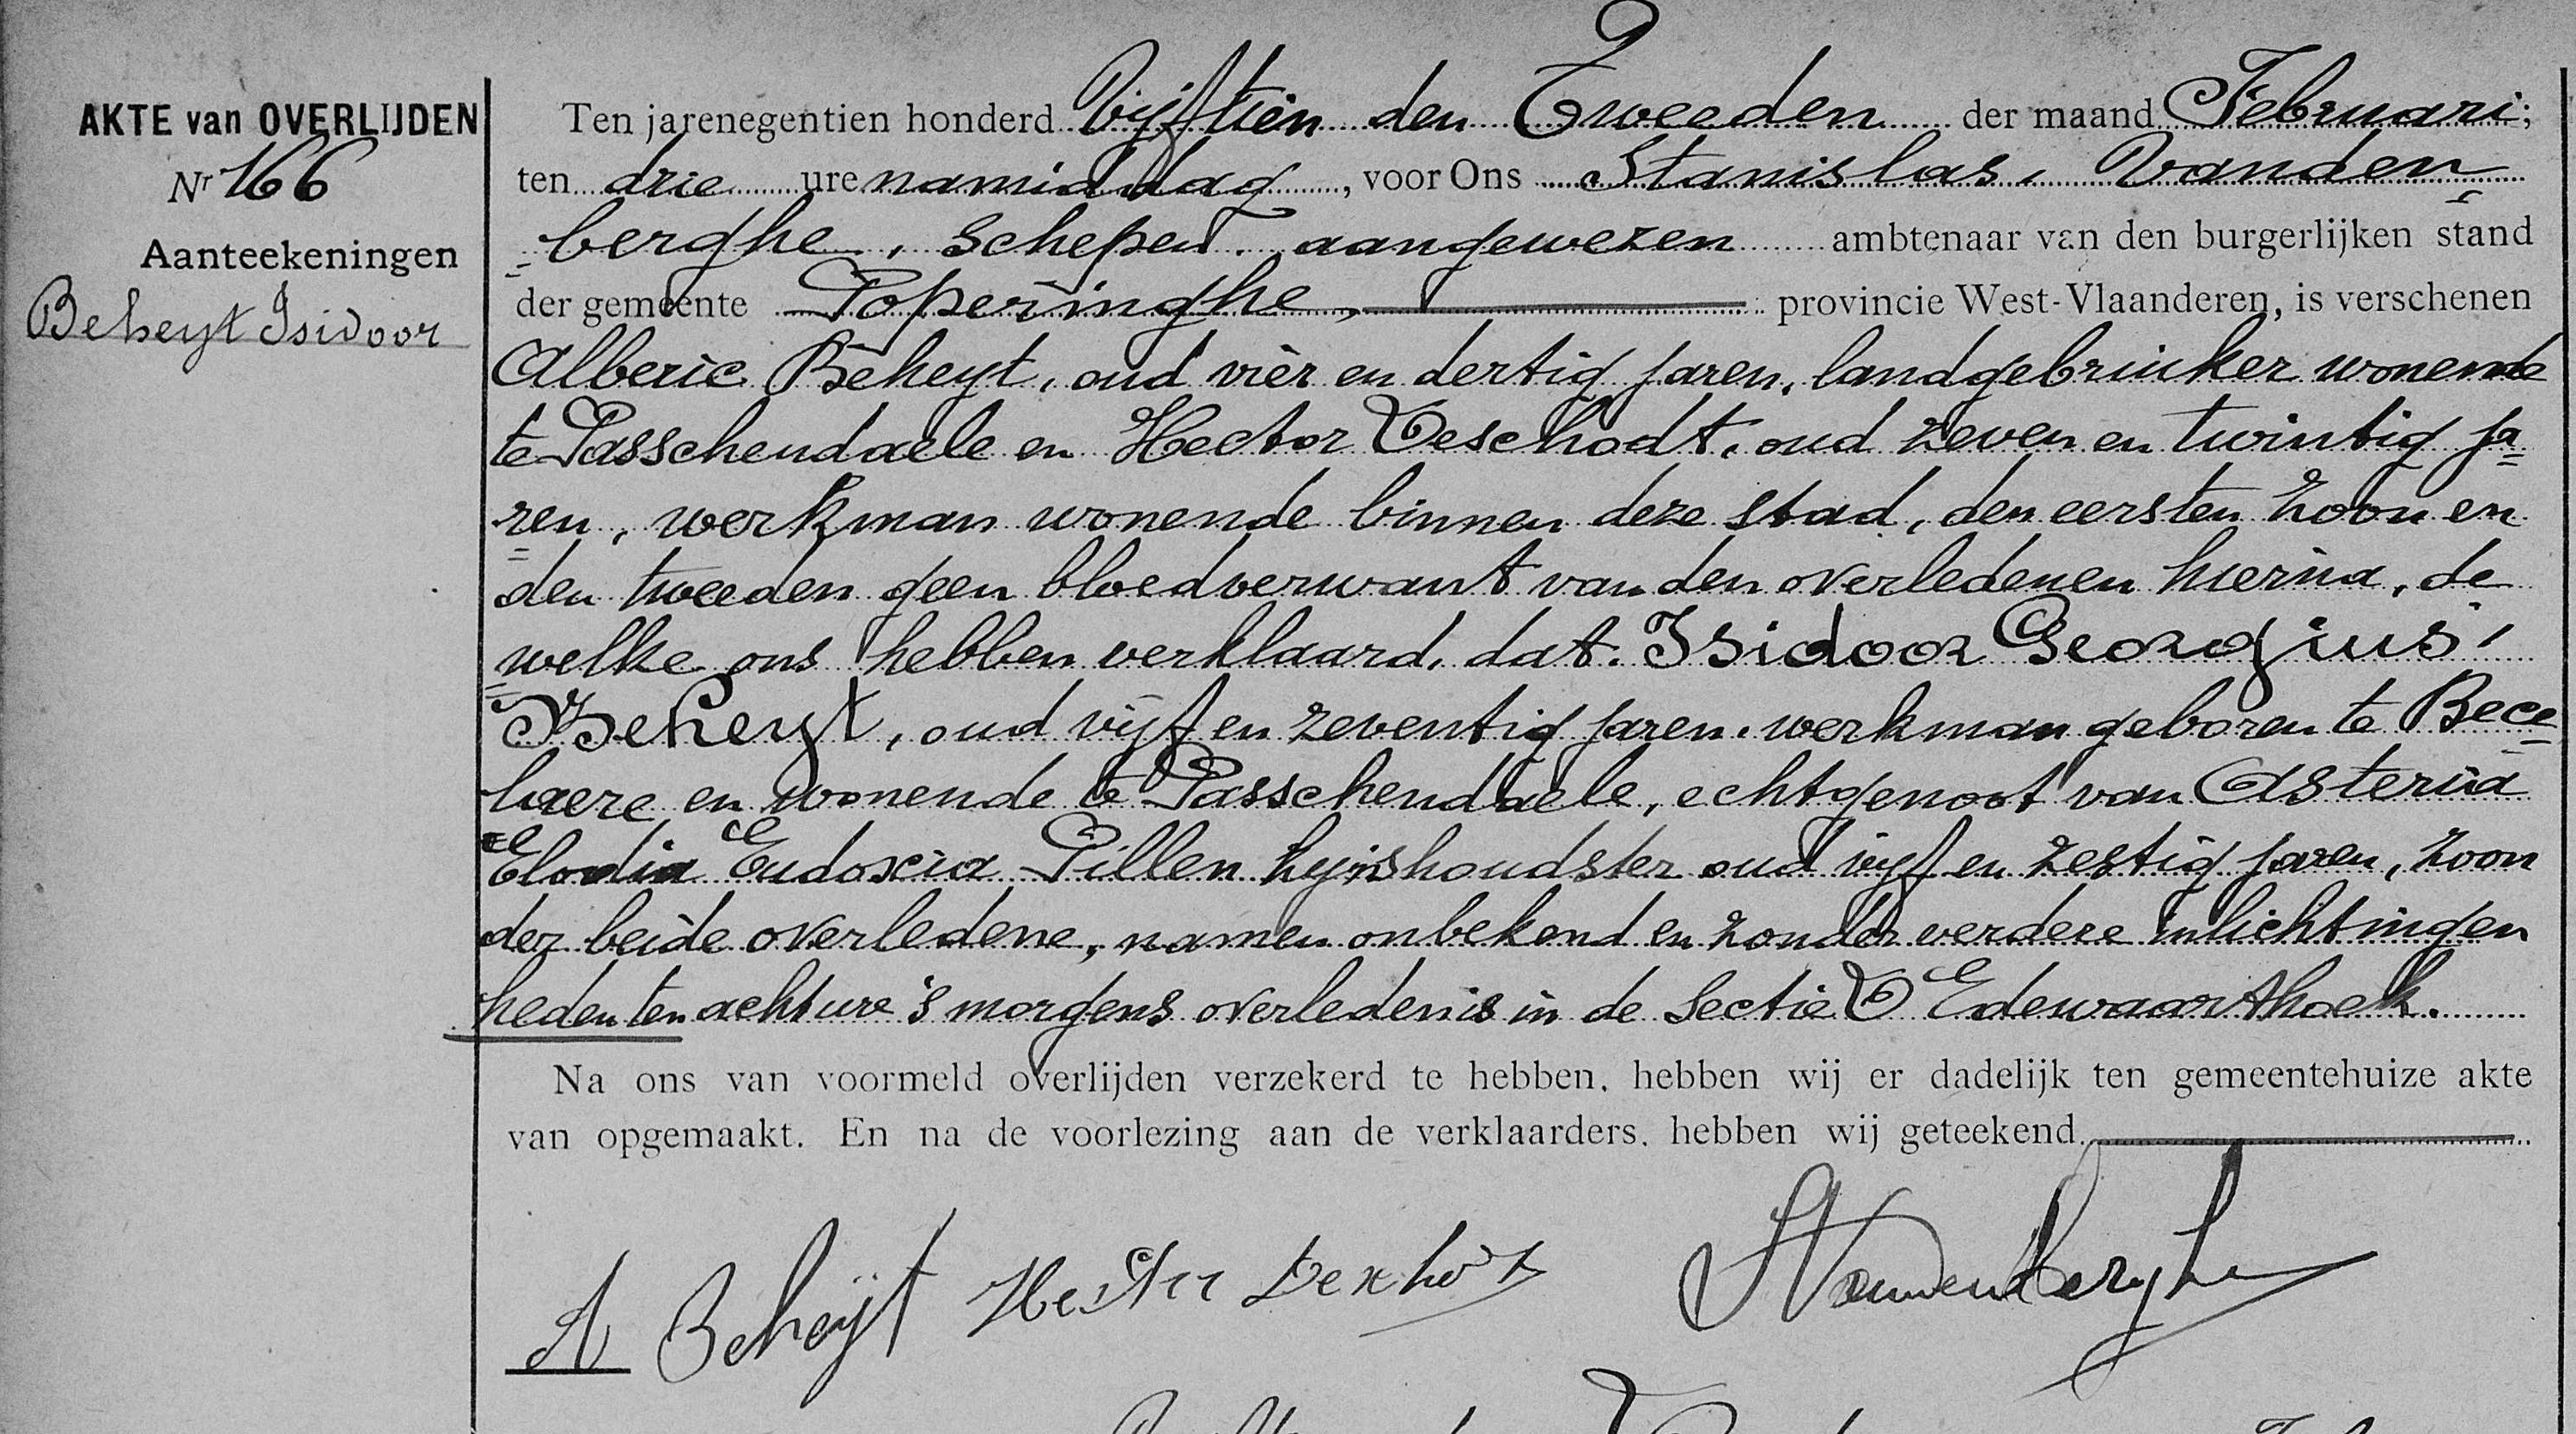 AKTE van OVERLIJDEN
Nr 166
Aanteekeningen
Beheyt Isidoor
Ten jarenegentien honderd Vijftien den Tweeden der maand Februari;
ten drie ure namiddag, voor Ons Stanislas, Vanden
berghe, schepen aangewezen ambtenaar van den burgerlijken stand
der gemeente Poperinghe, provincie West-Vlaanderen, is verschenen
Alberic Beheyt, oud vier en dertig jaren, landgebruiker wonende
te Passchendaele en Hector Deschodt, oud zeven en twintig ja=
ren, werkman wonende binnen deze stad, den eersten zoon en
den tweeden geen bloedverwant van den overledenen hierna, de
welke ons hebben verklaard, dat Isidoor Georgius,
Beheyt, oud vijf en zeventig jaren, werkman geboren te Bece=
laere en wonende te Passchendaele, echtgenoot van Asteria
Elodia Eudoxia Pillen huishoudster oud vijf en zestig jaren, zoon
der beide overledene, namen onbekend en zonder verdere inlichtingen
heden ten acht ure 's morgens overleden is in de Sectie D Edewaarthoek.
Na ons van voormeld overlijden verzekerd te hebben, hebben wij er dadelijk ten gemeentehuize akte
van opgemaakt. En na de voorlezing aan de verklaarders, hebben wij geteekend.
A Beheyt Hector SVandenberghe